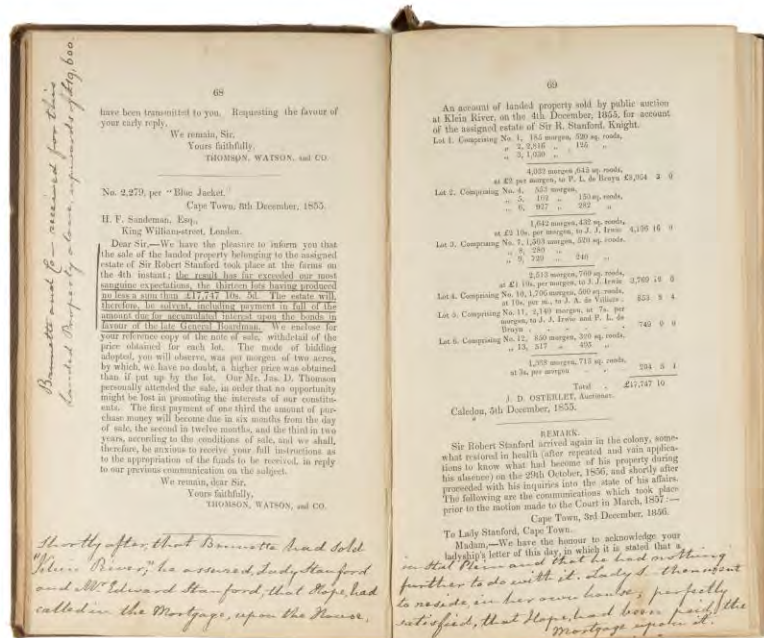 Brunette and Co – received for this
Landed Property alone, upwards of £19,600.
68
have been transmitted to you. Requesting the favour of
your early reply,
We remain, Sir,
Yours faithfully,
THOMSON, WATSON, and CO.
No. 2,279, per "Blue Jacket.
Cape Town, 8th December, 1855.
H. F. Sandeman, Esq.,
King William-street, London.
Dear Sir,—We have the pleasure to inform you that
the sale of the landed property belonging to the assigned
estate of Sir Robert Stanford took place at the farms on
the 4th instant; the result has far exceeded our most
sanguine expectations, the thirteen lots having produced
no less a sum than £17,747 10s. 5d. The estate will,
therefore, be solvent, including payment in full of the
amount due for accumulated interest upon the bonds in
favour of the late General Boardman. We enclose for
your reference copy of the note of sale, with detail of the
price obtained for each lot. The mode of bidding
adopted, you will observe, was per morgen of two acres,
by which, we have no doubt, a higher price was obtained
than if put up by the lot. Our Mr. Jas. D. Thomson
personally attended the sale, in order that no opportunity
might be lost in promoting the interests of our constitu-
ents. The first payment of one third the amount of pur-
chase money will become due in six months from the day
of sale, the second in twelve months, and the third in two
years, according to the conditions of sale, and we shall,
therefore, be anxious to receive your full instructions as
to the appropriation of the funds to be received, in reply
to our previous communication on the subject.
We remain, dear Sir,
Yours faithfully,
THOMSON, WATSON, and CO.
Shortly after, that Brunette had sold
"Klein River," he assured, Lady Stanford
and Mr Edward Stanford, that Hope, had
called in the Mortgage, upon the House,
69
An account of landed property sold by public auction
at Klein River, on the 4th December, 1855, for account
of the assigned estate of Sir R. Stanford, Knight.
Lot 1. Comprising No. 1, 185 morgen, 520 sq. roods,
„ 2, 2,816 „ 125 „
„ 3, 1,030 „
4,032 morgen, 645 sq. roods,
at £2 per morgen, to P. L. de Bruyn £8,064 3 0
Lot 2. Comprising No. 4, 553 morgen,
„ 5, 162 „ 150 sq. roods,
„ 6, 927 „ 282 „
1,642 morgen, 432 sq. roods,
at £2 10s. per morgen, to J. J. Irwin 4,106 16 0
Lot 3. Comprising No. 7, 1,503 morgen, 520 sq. roods,
„ 8, 280 „
„ 9, 729 „ 240 „
2,513 morgen, 760 sq. roods,
at £1 10s. per morgen, to J. J. Irwin 3,769 18 0
Lot 4. Comprising No. 10, 1,706 morgen, 500 sq. roods,
at 10s. per m., to J. A. de Villiers . 853 8 4
Lot 5. Comprising No. 11, 2,140 morgen, at 7s. per
morgen, to J. J. Irwin and P. L. de
Bruyn . . . 749 0 0
Lot 6. Comprising No. 12, 850 morgen, 320 sq. roods,
„ 13, 517 „ 495 „
at 3s. per morgen 204 5 1
Total . £17,747 10
J. D. OSTERLET, Auctioneer.
Caledon, 5th December, 1855.
REMARK.
Sir Robert Stanford arrived again in the colony, some-
what restored in health (after repeated and vain applica-
tions to know what had become of his property during
his absence) on the 29th October, 1856, and shortly after
proceeded with his inquiries into the state of his affairs.
The following are the communications which took place
prior to the motion made to the Court in March, 1857:—
Cape Town, 3rd December, 1856.
To Lady Stanford, Cape Town.
Madam,—We have the honour to acknowledge your
ladyship's letter of this day, in which it is stated that a
in that Plein and that he had nothing
further to do with it. Lady S– then went
to reside, in her own house, perfectly
satisfied, that Hope, had been paid, the
Mortgage upon it.